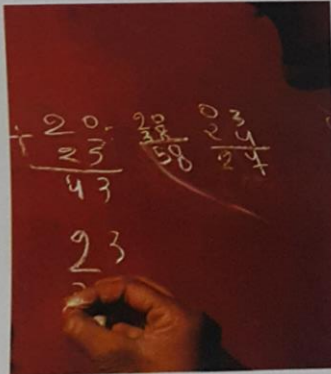 + 20
23
43
20
38
58
03
24
27
23